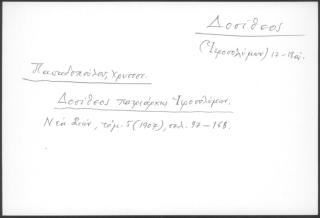 Δοσίθεος
(Ἱεροσολύμων) 17-18 αἰ.
Παπαδόπουλος, Χρυσοστ.
Δοσίθεος πατριάρχης Ἱεροσολύμων.
Νέα Σιών, τόμ. 5 (1907), σελ. 97-168.